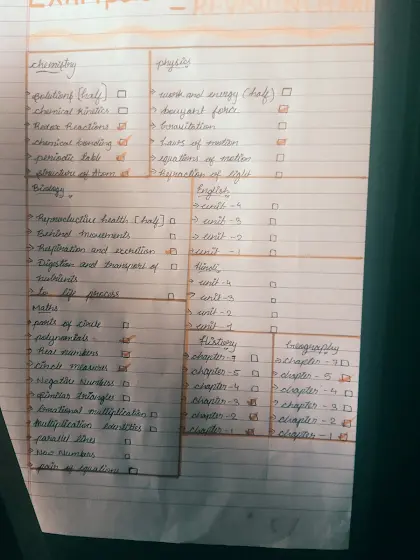 chemistry
solutions [half]
chemical kinetics
Redox Reactions
chemical bonding
periodic table
structure of Atom
physics
work and energy [half]
bouyant force
Gravitation
Laws of motion
equations of motion
Refraction of light
Biology
Reproductive health [half]
Behind movements
Respiration and excretion
Digestion and transport of
nutrients
life process
English
unit - 4
unit - 3
unit - 2
unit - 1
Hindi
unit - 4
unit - 3
unit - 2
unit - 1
Maths
parts of circle
polynomials
Real numbers
circle measures
Negative Numbers
similar triangles
multiplication
multiplication identities
parallel lines
New Numbers
pair of equations
History
chapter - 5
chapter - 4
chapter - 3
chapter - 2
chapter - 1
Geography
chapter - 7
chapter - 5
chapter - 4
chapter - 3
chapter - 2
chapter - 1